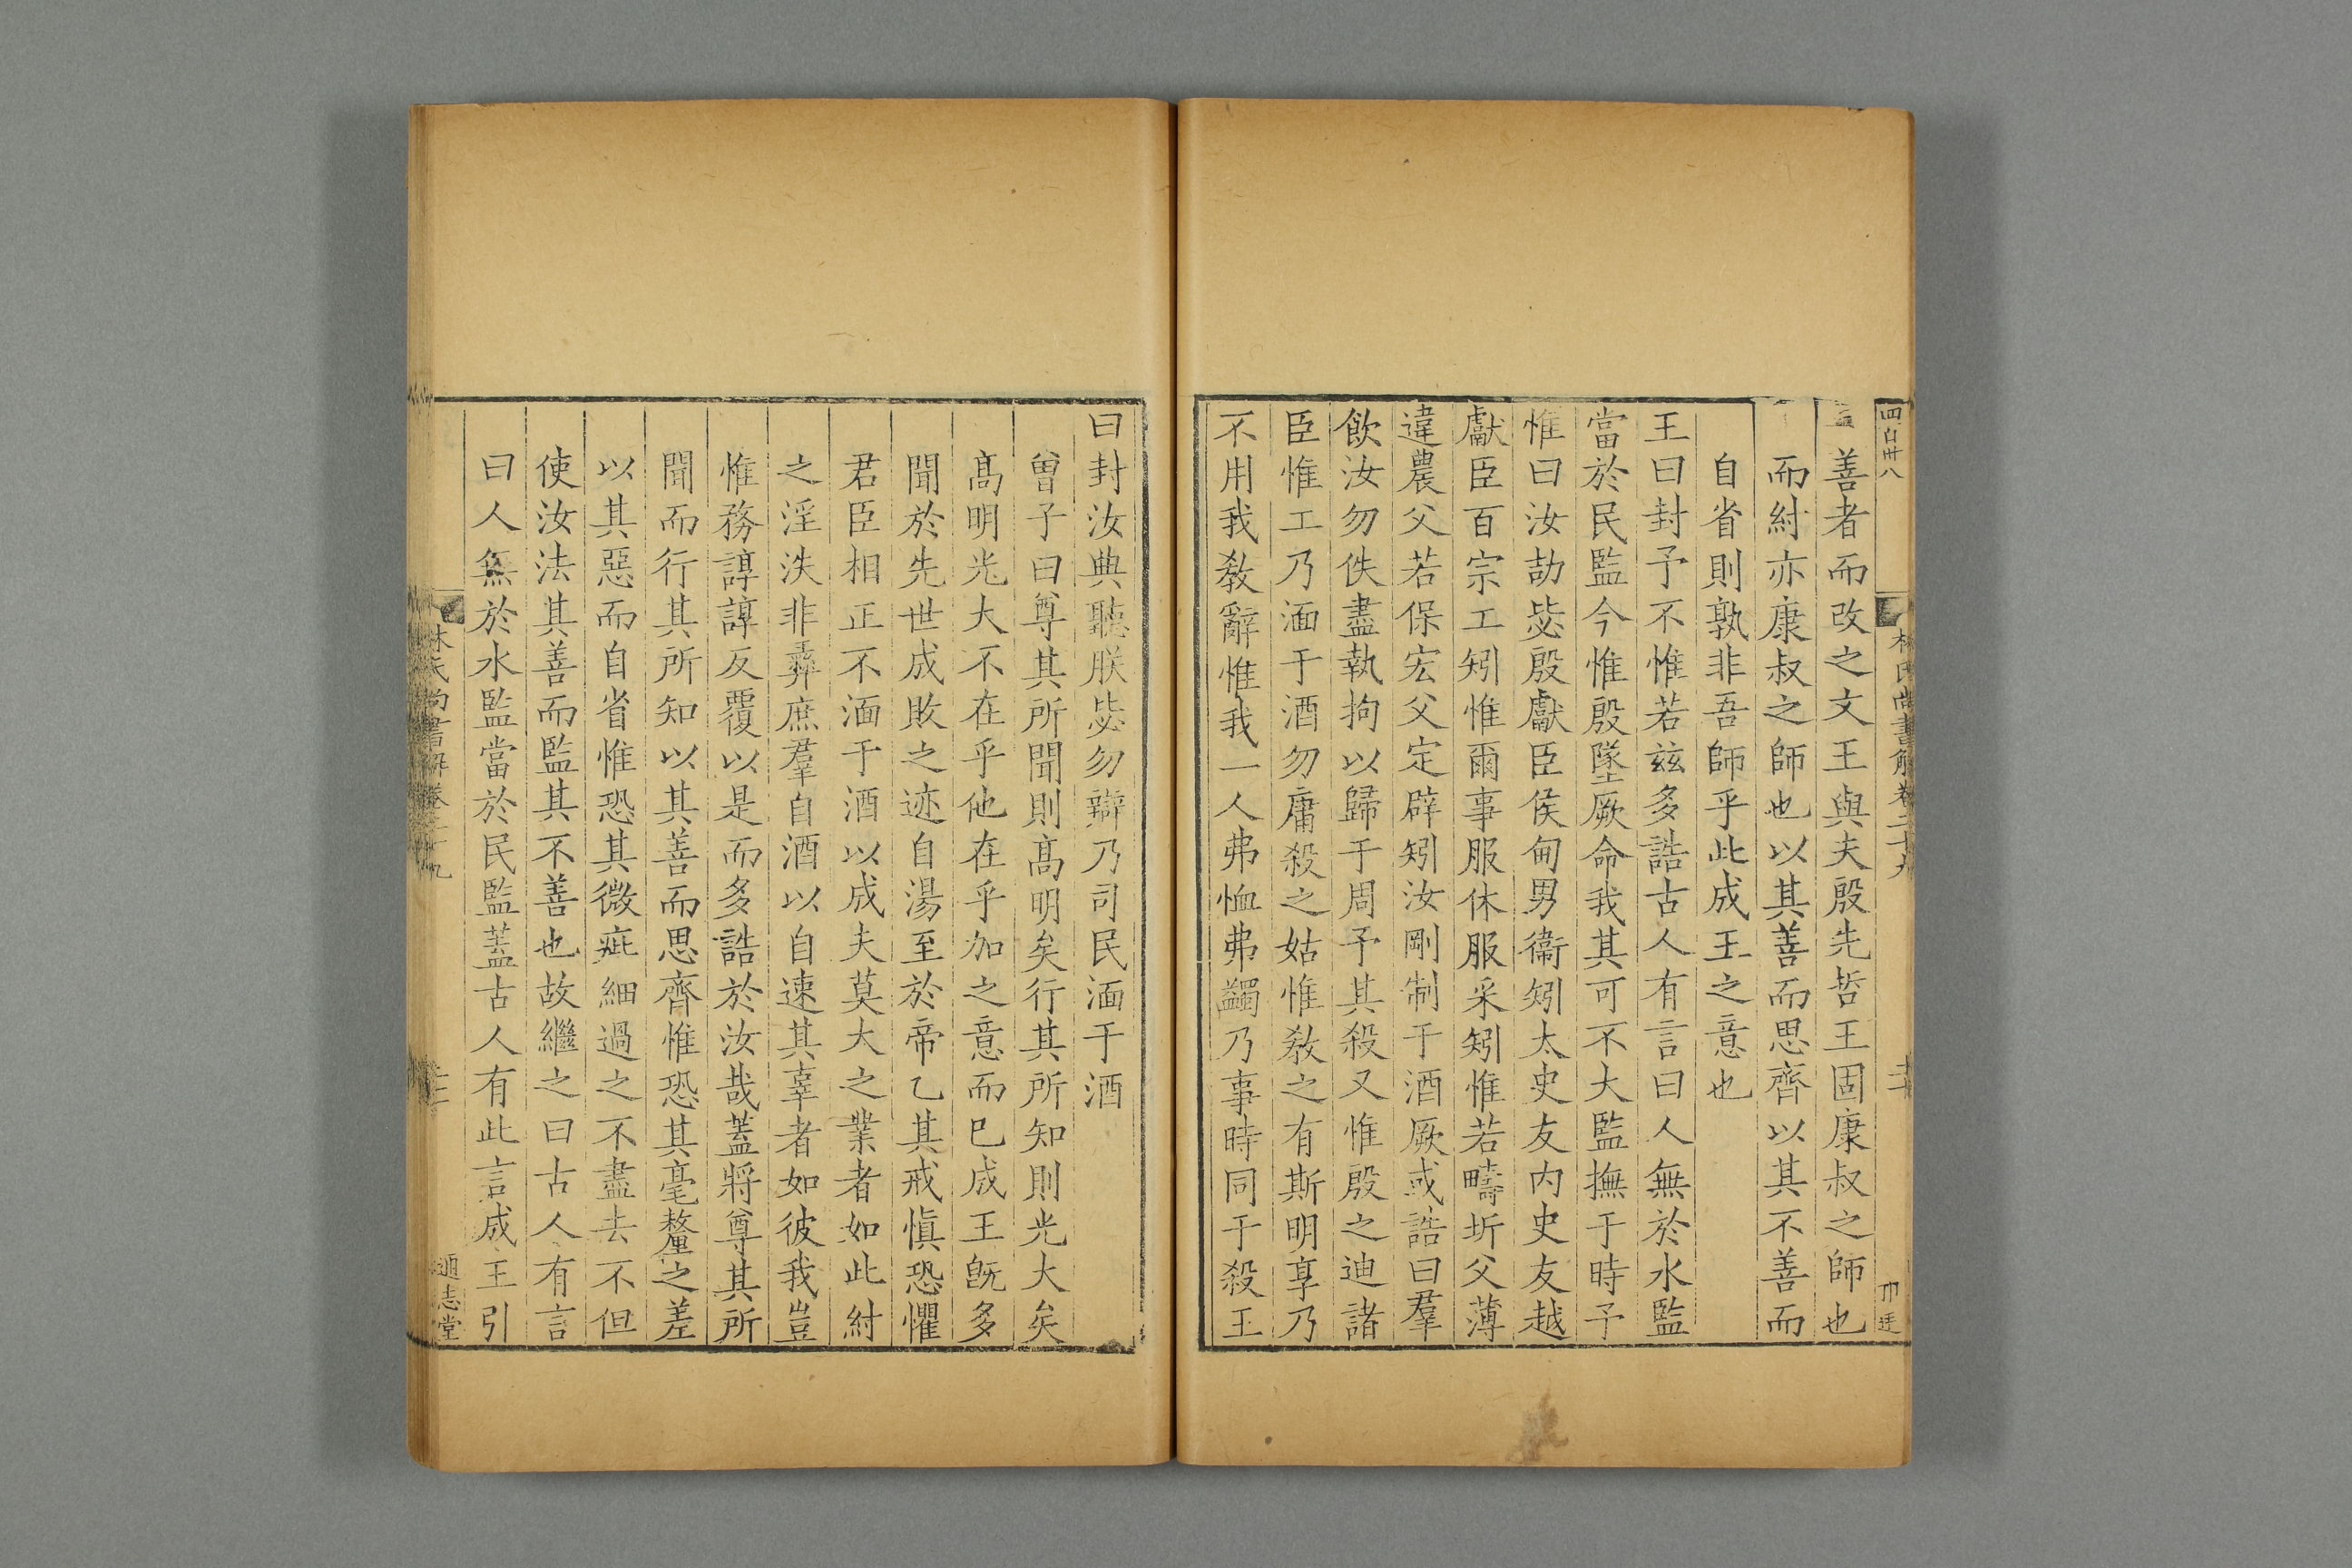 四百卅八
林氏尚書解卷二十九
善者而改之文王與夫殷先哲王固康叔之師也
而紂亦康叔之師也以其善而思齊以其不善而
自省則孰非吾師乎此成王之意也
王曰封予不惟若兹多誥古人有言曰人無於水監
當於民監今惟殷墜厥命我其可不大監撫于時予
惟曰汝劼毖殷獻臣侯甸男衞矧太史友内史友越
獻臣百宗工矧惟爾事服休服采矧惟若疇圻父薄
違農父若保宏父定辟矧汝剛制于酒厥或誥曰羣
飲汝勿佚盡執拘以歸于周予其殺又惟殷之迪諸
臣惟工乃湎于酒勿庸殺之姑惟敎之有斯明享乃
不用我敎辭惟我一人弗恤弗蠲乃事時同于殺王
曰封汝典聽朕毖勿辯乃司民湎于酒
曾子曰尊其所聞則髙明矣行其所知則光大矣
髙明光大不在乎他在乎加之意而巳成王旣多
聞於先世成敗之迹自湯至於帝乙其戒愼恐懼
君臣相正不湎于酒以成夫莫大之業者如此紂
之淫泆非彝庶羣自酒以自速其辜者如彼我豈
惟務諄諄反覆以是而多誥於汝哉蓋將尊其所
聞而行其所知以其善而思齊惟恐其毫釐之差
以其惡而自省惟恐其微疵細過之不盡去不但
使汝法其善而監其不善也故繼之曰古人有言
曰人無於水監當於民監蓋古人有此言成王引
林氏尚書解卷二十九
通志堂